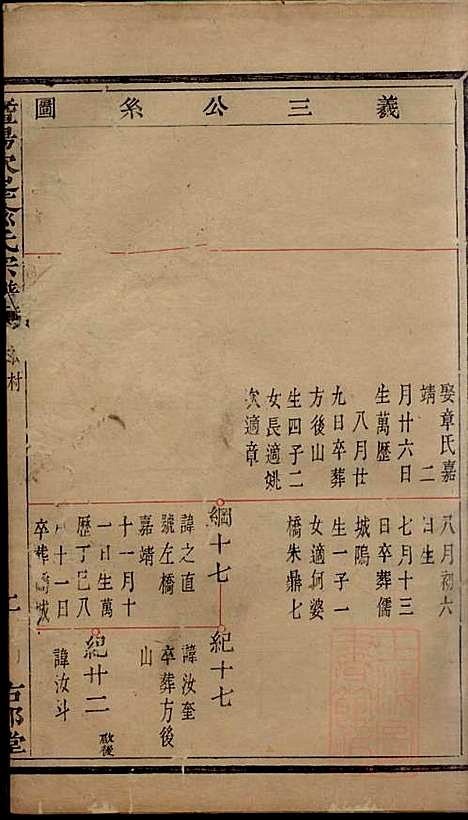 義三公糸圖
娶章氏嘉
靖　二
月廿六日
生萬歷
八月廿
九日卒葬
方後山
生四子二
女長適姚
次適章
八月初六
日生
七月十三
日卒葬儒
城隖
生一子一
女適何婆
橋朱鼎七
綱十七
諱之直
號左橋
嘉靖
十一月十
一日生萬
歷丁巳八
十一日
卒葬城
紀十七
諱汝奎
卒葬方後
山
紀廿二
諱汝斗
村